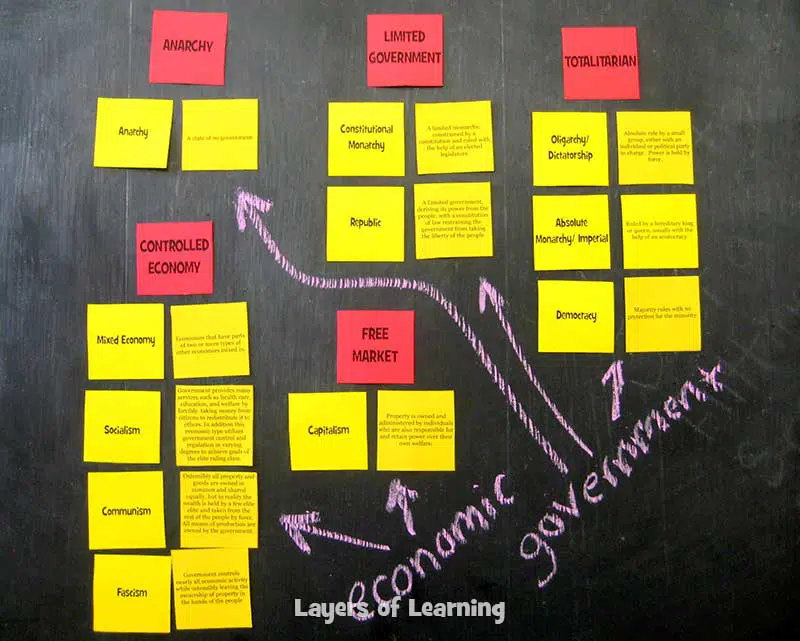 ANARCHY
Anarchy
A state of no government
LIMITED
GOVERNMENT
Constitutional
Monarchy
A limited monarchy,
constrained by a
constitution and ruled with
the help of an elected
legislature
Republic
A Limited government,
deriving its power from the
people, with a constitution
of law restraining the
government from taking
the liberty of the people
TOTALITARIAN
Oligarchy/
Dictatorship
Absolute rule by a small
group, either with an
individual or political party
in charge. Power is held by
force.
Absolute
Monarchy/ Imperial
Ruled by a hereditary king
or queen, usually with the
help of an aristocracy
Democracy
Majority rules with no
protection for the minority
CONTROLLED
ECONOMY
Mixed Economy
Economies that have parts
of two or more types of
other economies mixed in.
Socialism
Government provides many
services such as health care,
education, and welfare by
forcibly taking money from
citizens to redistribute it to
others. In addition this
economic type utilizes
government control and
regulation in varying
degrees to achieve goals of
the elite ruling class.
Communism
Ostensibly all property and
goods are owned in
common and shared
equally, but in reality the
wealth is held by a few elite
elite and taken from the
rest of the people by force.
All means of production are
owned by the government.
Fascism
Government controls
nearly all economic activity
while ostensibly leaving the
ownership of property in
the hands of the people
FREE
MARKET
Capitalism
Property is owned and
administered by individuals
who are also responsible for
and retain power over their
own welfare.
economic
government
Layers of Learning